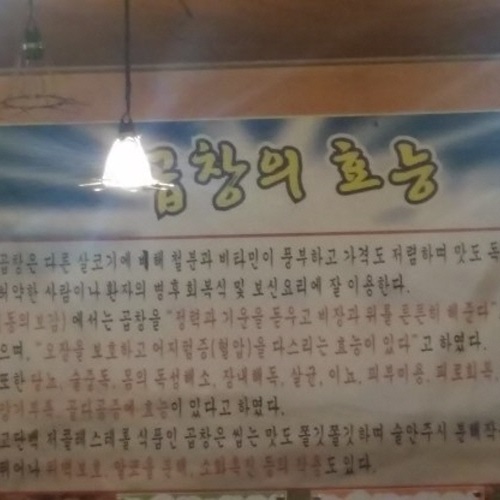 곱창의 효능
곱창은 다른 살코기에 비해 철분과 비타민이 풍부하고 가격도 저렴하며 맛도 독
허약한 사람이나 환자의 병후회복식 및 보신요리에 잘 이용한다.
(동의보감)에서는 곱창을 "정력과 기운을 돋우고 비장과 위를 튼튼히 해준다"
으며, "오장을 보호하고 어지럼증(혈압)을 다스리는 효능이 있다"고 하였다.
또한 당뇨, 술중독, 몸의 독성해소, 장내해독, 살균, 이뇨, 피부미용, 피로회복,
양기부족, 골다골증에 효능이 있다고 하였다.
고단백 저콜레스테롤 식품인 곱창은 씹는 맛도 쫄깃쫄깃하며 술안주시 분해작
뛰어나 위벽보호, 알코올분해, 소화촉진 등의 작용도 있다.